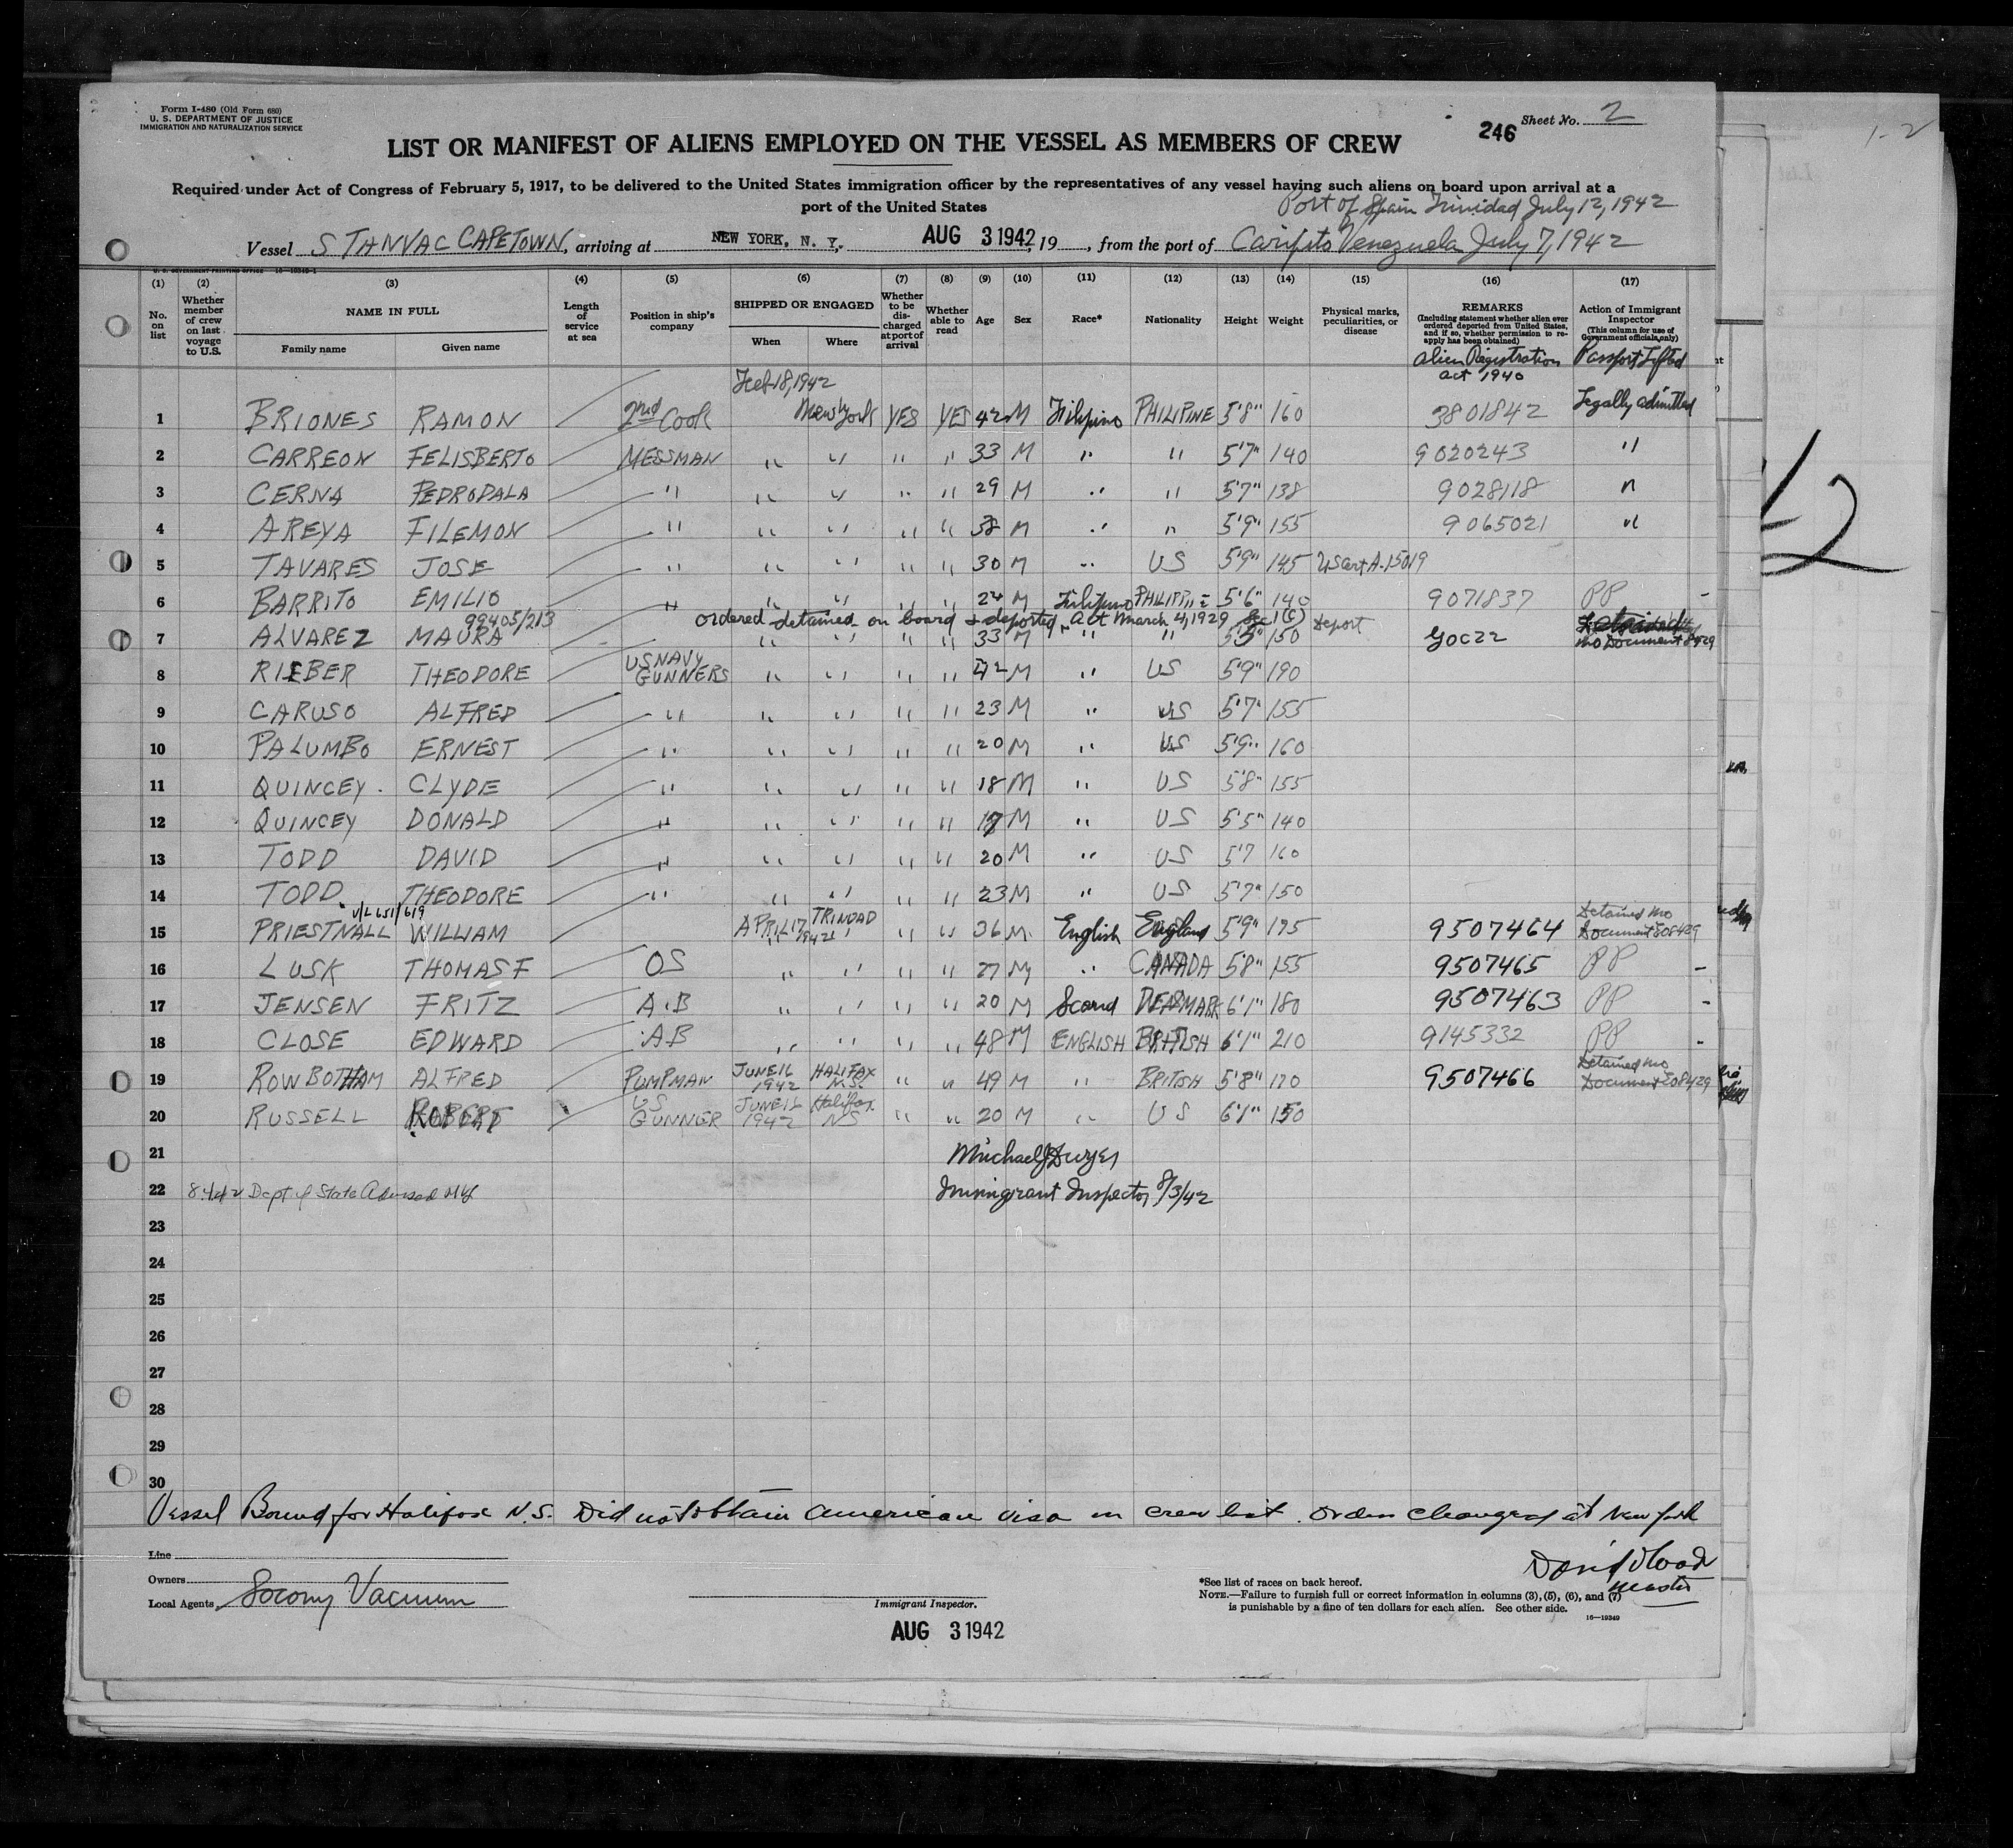 Form I-480 (Old Form 680)
U. S. DEPARTMENT OF JUSTICE
IMMIGRATION AND NATURALIZATION SERVICE
Sheet No. 2
246
1-2
LIST OR MANIFEST OF ALIENS EMPLOYED ON THE VESSEL AS MEMBERS OF CREW
Required under Act of Congress of February 5, 1917, to be delivered to the United States immigration officer by the representatives of any vessel having such aliens on board upon arrival at a
port of the United States
Port of Spain Trinidad July 12, 1942
Vessel STANVAC CAPETOWN, arriving at NEW YORK, N. Y. AUG 3 1942, 19, from the port of Caripito Venezuela July 7, 1942
U. S. GOVERNMENT PRINTING OFFICE 16-19349-1
(1) (2) (3) (4) (5) (6) (7) (8) (9) (10) (11) (12) (13) (14) (15) (16) (17)
No. on list
Whether member of crew on last voyage to U.S.
NAME IN FULL
Family name Given name
Length of service at sea
Position in ship's company
SHIPPED OR ENGAGED
When Where
Whether to be discharged at port of arrival
Whether able to read
Age
Sex
Race*
Nationality
Height
Weight
Physical marks, peculiarities, or disease
REMARKS
(Including statement whether alien ever ordered deported from United States, and if so, whether permission to re-apply has been obtained)
Action of Immigrant Inspector
(This column for use of Government officials only)
Alien Registration act 1940
Passport Lifted
Feb 18, 1942
1 BRIONES RAMON 2nd Cook New York YES YES 42 M Filipino PHILIPINE 5'8" 160 3801842 Legally admitted
2 CARREON FELISBERTO MESSMAN " " " " 33 M " " 5'7" 140 9020243 "
3 CERNA PEDRODALA " " " " " 29 M " " 5'7" 138 9028118 "
4 AREYA FILEMON " " " " " 38 M " " 5'9" 155 9065021 "
5 TAVARES JOSE " " " " " 30 M " US 5'9" 145 US Cert A-15019
6 BARRITO EMILIO " " " " " 24 M Filipino PHILIPPINE 5'6" 140 9071837 PP -
99405/213 ordered detained on board & deported Act March 4, 1929 Sec 1(c) Deport
7 ALVAREZ MAURA " " " " 33 M " " 5'5" 150 no Document
8 RIEBER THEODORE US NAVY GUNNERS " " " " 42 M " US 5'9" 190
9 CARUSO ALFRED " " " " " 23 M " US 5'7" 155
10 PALUMBO ERNEST " " " " " 20 M " US 5'9" 160
11 QUINCEY. CLYDE " " " " " 18 M " US 5'8" 155
12 QUINCEY DONALD " " " " " 17 M " US 5'5" 140
13 TODD DAVID " " " " " 20 M " US 5'7 160
14 TODD. THEODORE " " " " " 23 M " US 5'7" 150
V/L 651/619
15 PRIESTNALL WILLIAM APRIL 17 1942 TRINDAD " " 36 M. English England 5'9" 175 9507464 Detained no Document 808429
16 LUSK THOMAS F OS " " " " 27 M " CANADA 5'8" 155 9507465 PP -
17 JENSEN FRITZ A.B " " " " 20 M Scand DENMARK 6'1" 180 9507463 PP -
18 CLOSE EDWARD AB " " " " 48 M ENGLISH BRITISH 6'1" 210 9145332 PP -
19 ROWBOTHAM ALFRED PUMPMAN JUNE 16 1942 HALIFAX N.S. " " 49 M " BRITISH 5'8" 170 9507466 Detained no Document 808429
20 RUSSELL ROBERT US GUNNER JUNE 16 1942 Halifax NS " " 20 M " US 6'1" 150
21 Michael J Dwyer
22 Dept of State Advised Immigrant Inspector 8/3/42
23
24
25
26
27
28
29
30
Vessel Bound for Halifax N.S. Did not obtain American visa on crew list. Orders changed at New York
Line
Owners
Local Agents Socony Vacuum
Immigrant Inspector.
AUG 3 1942
David Wood
Master
*See list of races on back hereof.
NOTE.—Failure to furnish full or correct information in columns (3), (5), (6), and (7)
is punishable by a fine of ten dollars for each alien. See other side.
16-19349